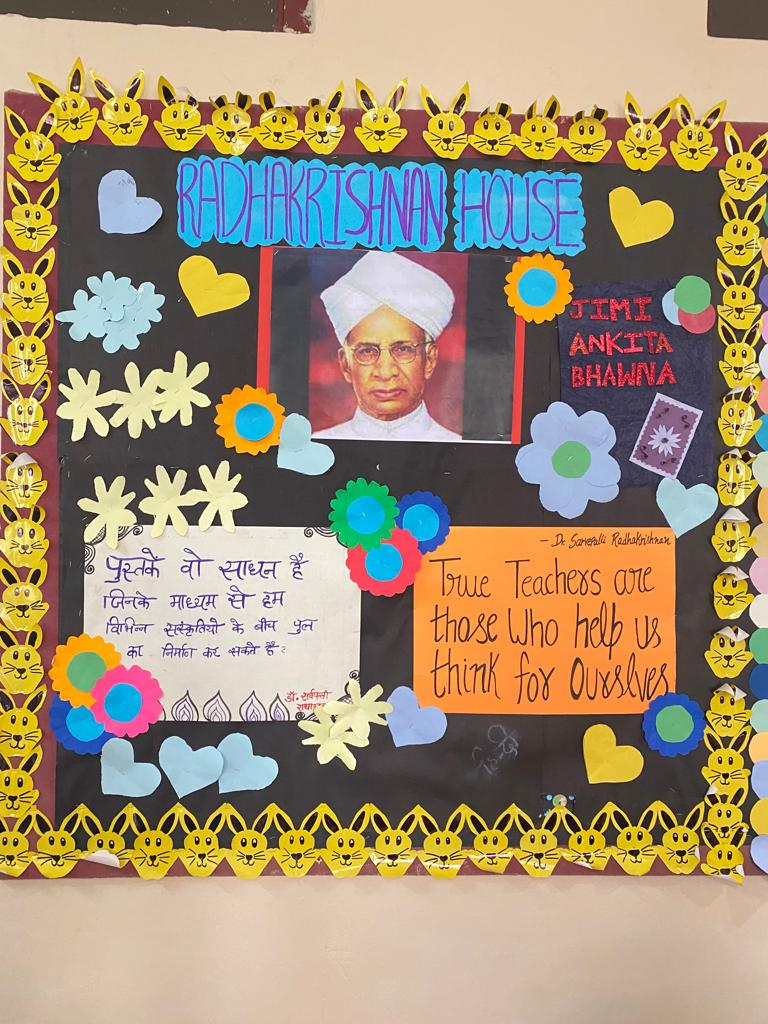 RADHAKRISHNAN HOUSE
JIMI
ANKITA
BHAWNA
पुस्तकें वो साधन है
जिनके माध्यम से हम
विभिन्न संस्कृतियो के बीच पुल
का निर्माण कर सकते है।
डॉ. सर्वपल्ली
— Dr Sarvepalli Radhakrishnan
True Teachers are
those Who help us
think for Ourslves
हिन्दी